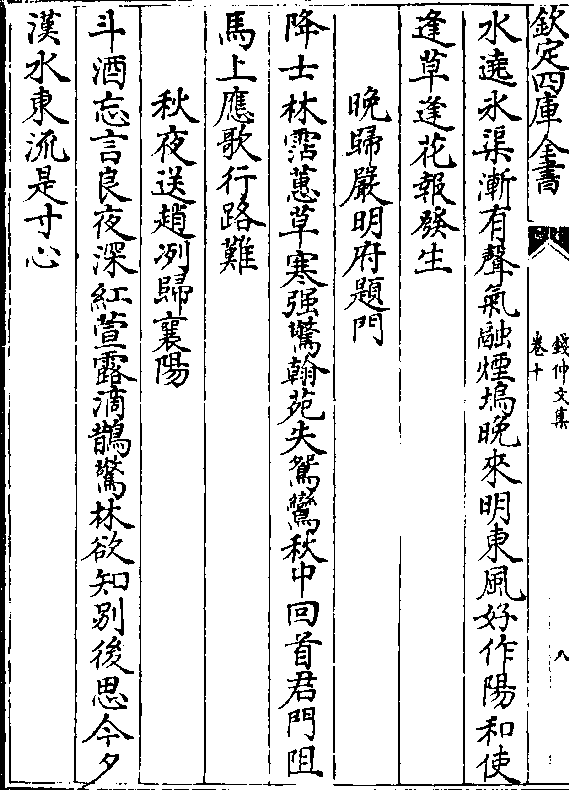 欽定四庫全書
錢仲文集
卷十
八
水遶氷渠漸有聲氣融煙塢晚來明東風好作陽和使
逢草逢花報發生
晚歸嚴明府題門
降士林霑蕙草寒强驚翰苑失鴛鸞秋中回首君門阻
馬上應歌行路難
秋夜送趙冽歸襄陽
斗酒忘言良夜深紅萱露滴鵲驚林欲知別後思今夕
漢水東流是寸心